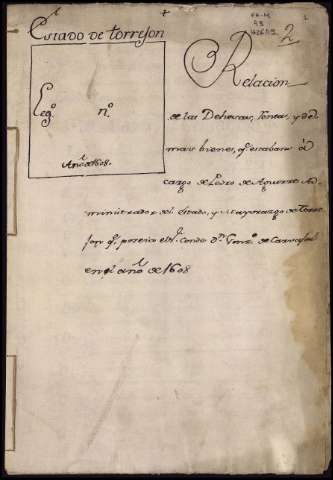 Estado de torrejon
2
Leg.º n.º
Año de 1608.
Relacion
de las Dehesas, rentas, y de
mas bienes, q.e estaban à
cargo de Pedro de Aguirre Ad
ministrador del Estado, y Mayorazgo de Torre
jon q.e poseia el S.r Conde D.n de Carvajal
en el año de 1608